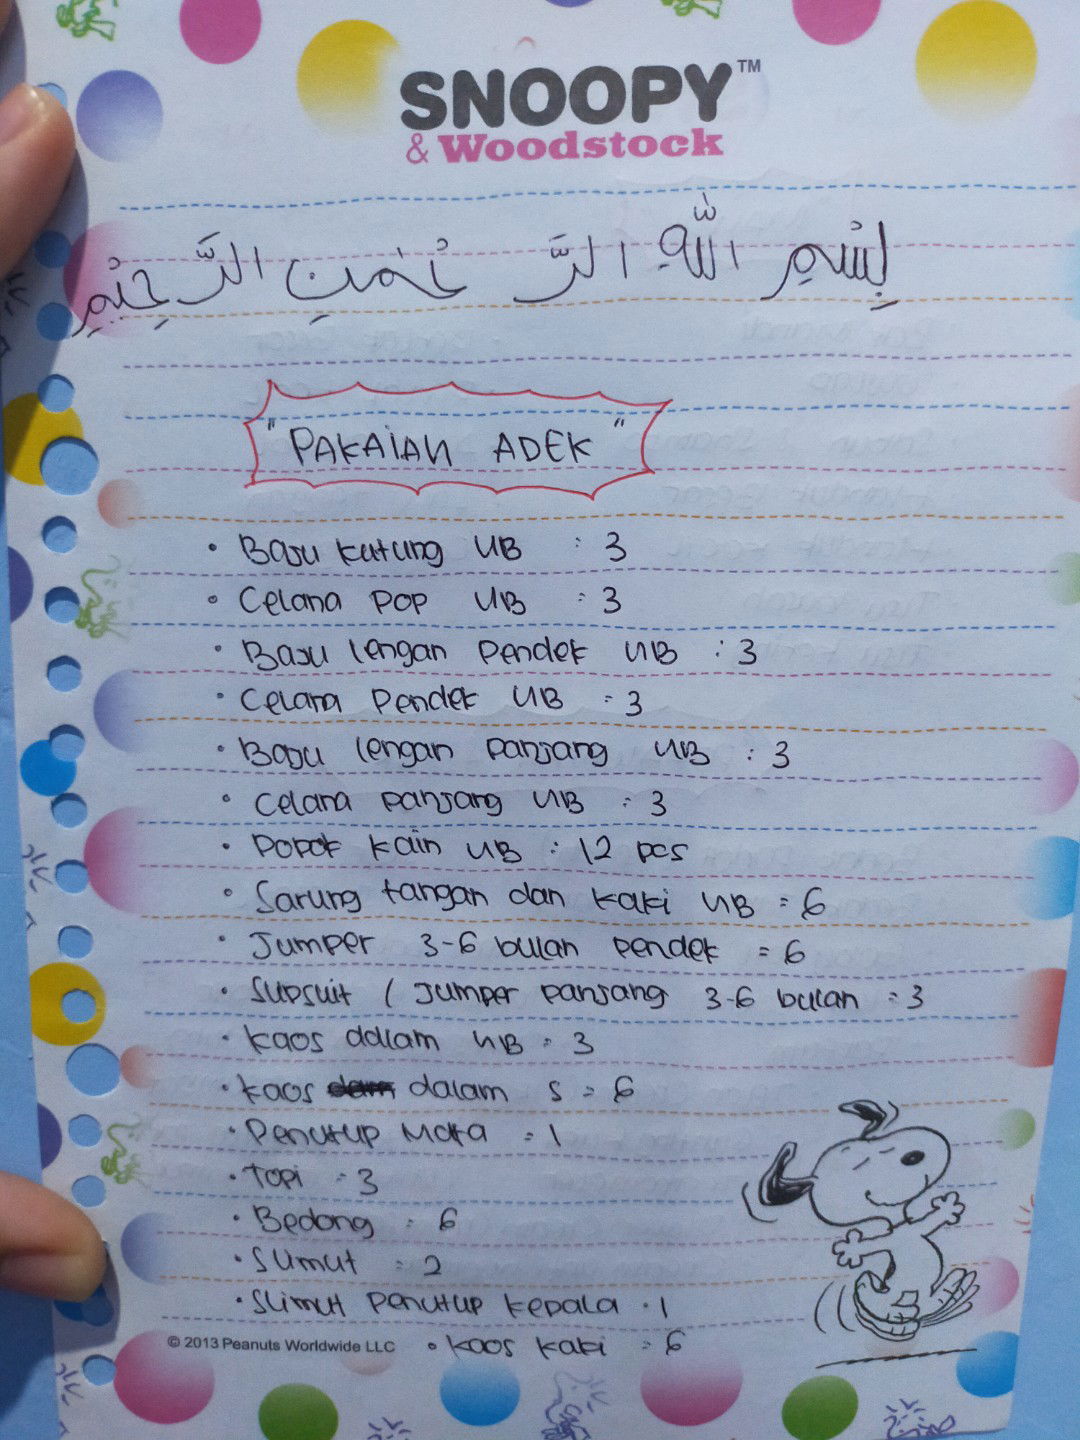 SNOOPY™
& Woodstock
بِسْمِ اللّٰهِ الرَّحْمٰنِ الرَّحِيْمِ
"PAKAIAN ADEK"
• Baju kutung NB : 3
• Celana POP NB : 3
• Baju lengan Pendek NB : 3
• Celana Pendek NB : 3
• Baju lengan panjang NB : 3
• Celana panjang NB : 3
• Popok kain NB : 12 pcs
• Sarung tangan dan kaki NB = 6
• Jumper 3-6 bulan pendek = 6
• Supsuit / Jumper panjang 3-6 bulan = 3
• kaos dalam NB = 3
• kaos dalam S = 6
• Penutup Mata = 1
• Topi = 3
• Bedong : 6
• Slimut : 2
• Slimut penutup kepala • 1
© 2013 Peanuts Worldwide LLC • kaos kaki = 6